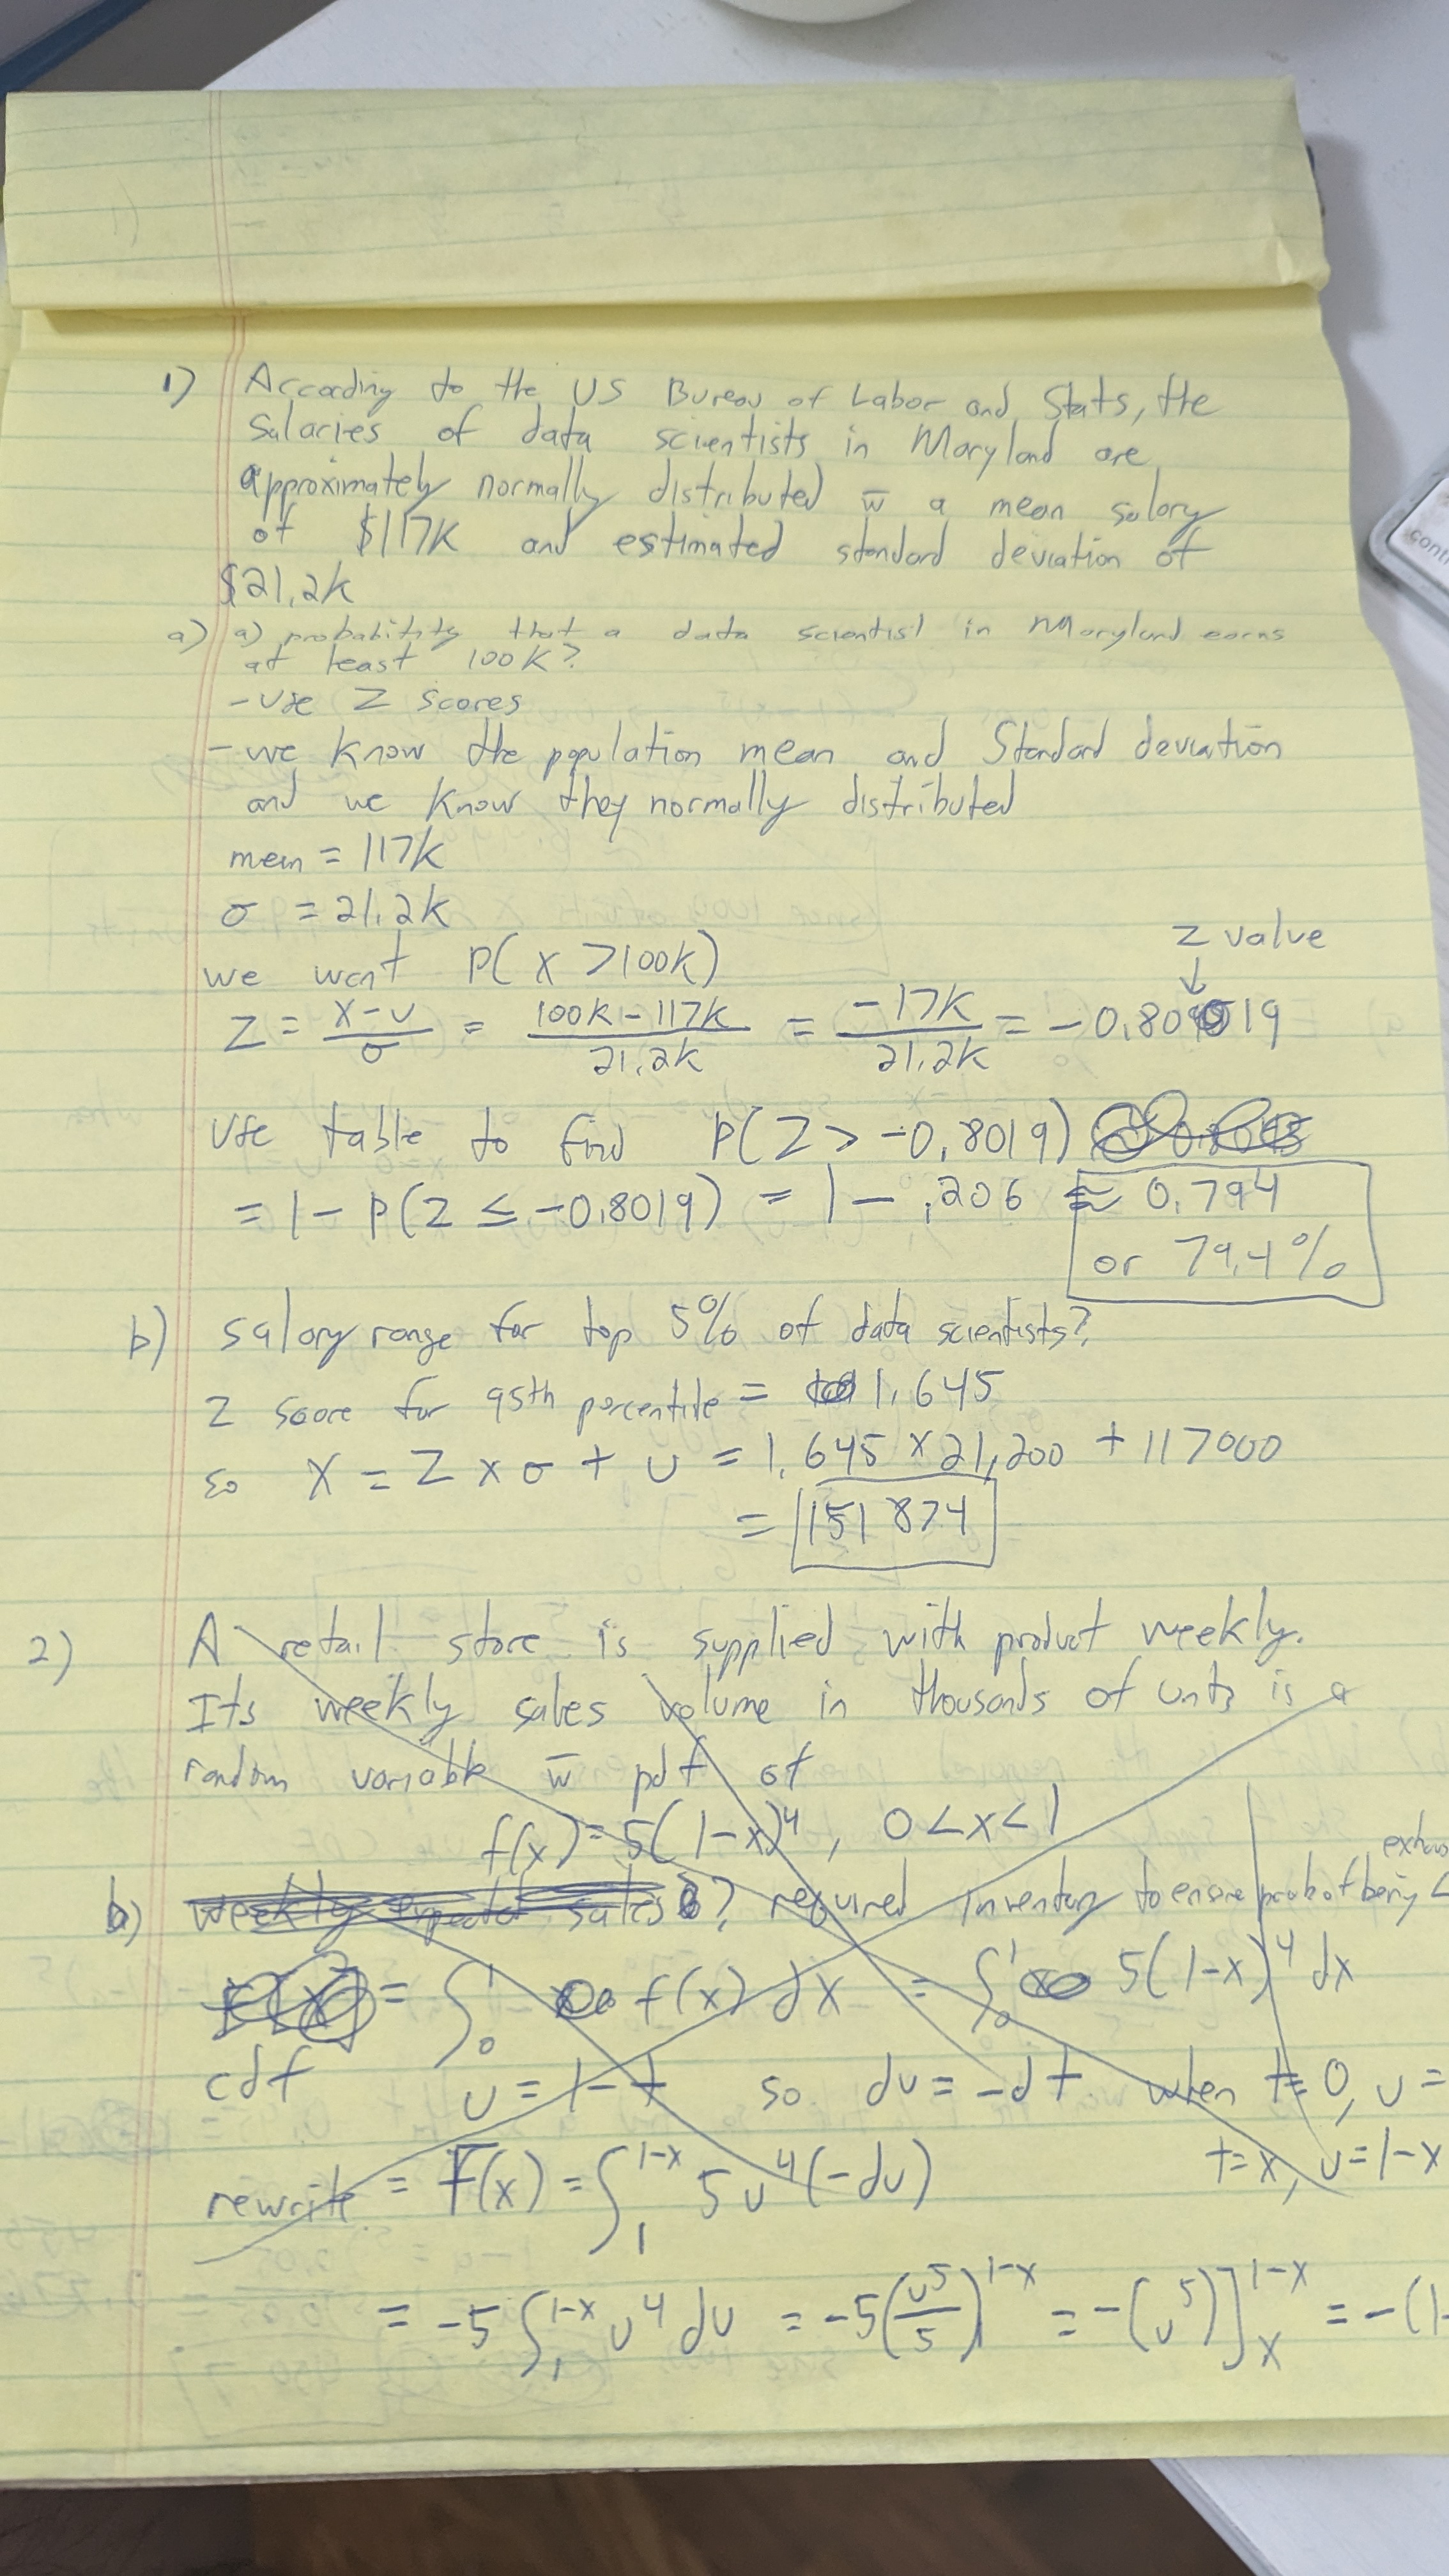 1) According to the US Bureau of Labor and Stats, the
salaries of data scientists in Maryland are
approximately normally distributed w̄ a mean salary
of $117K and estimated standard deviation of
$21.2k
a) a) probability that a data scientist in Maryland earns
at least 100K?
- use Z scores
- we know the population mean and Standard deviation
and we know they normally distributed
mean = 117k
σ = 21.2k
we want P(X > 100k)
Z value
↓
Z = (x-u)/σ = (100k - 117k)/21.2k = -17k/21.2k = -0.8019
use table to find P(Z > -0.8019)
= 1 - P(Z ≤ -0.8019) = 1 - .206 ≈ 0.794
or 79.4%
b) salary range for top 5% of data scientists?
Z score for 95th percentile = 1.645
so X = Z x σ + u = 1.645 x 21,200 + 117000
= 151874
2) A retail store is supplied with product weekly.
Its weekly sales volume in thousands of units is a
random variable w̄ pdf of
f(x) = 5(1-x)^4, 0 < x < 1
b) weekly expected sales? required inventory to ensure prob of being <
= ∫₀¹ f(x) dx = ∫₀¹ 5(1-x)^4 dx
cdf u = 1-t so du = -dt when t = 0, u =
t = x, u = 1-x
rewrite = F(x) = ∫₁^(1-x) 5u^4 (-du)
= -5 ∫₁^(1-x) u^4 du = -5(u^5/5)^(1-x) = -(u^5)]_x^(1-x) = -(1-
cont